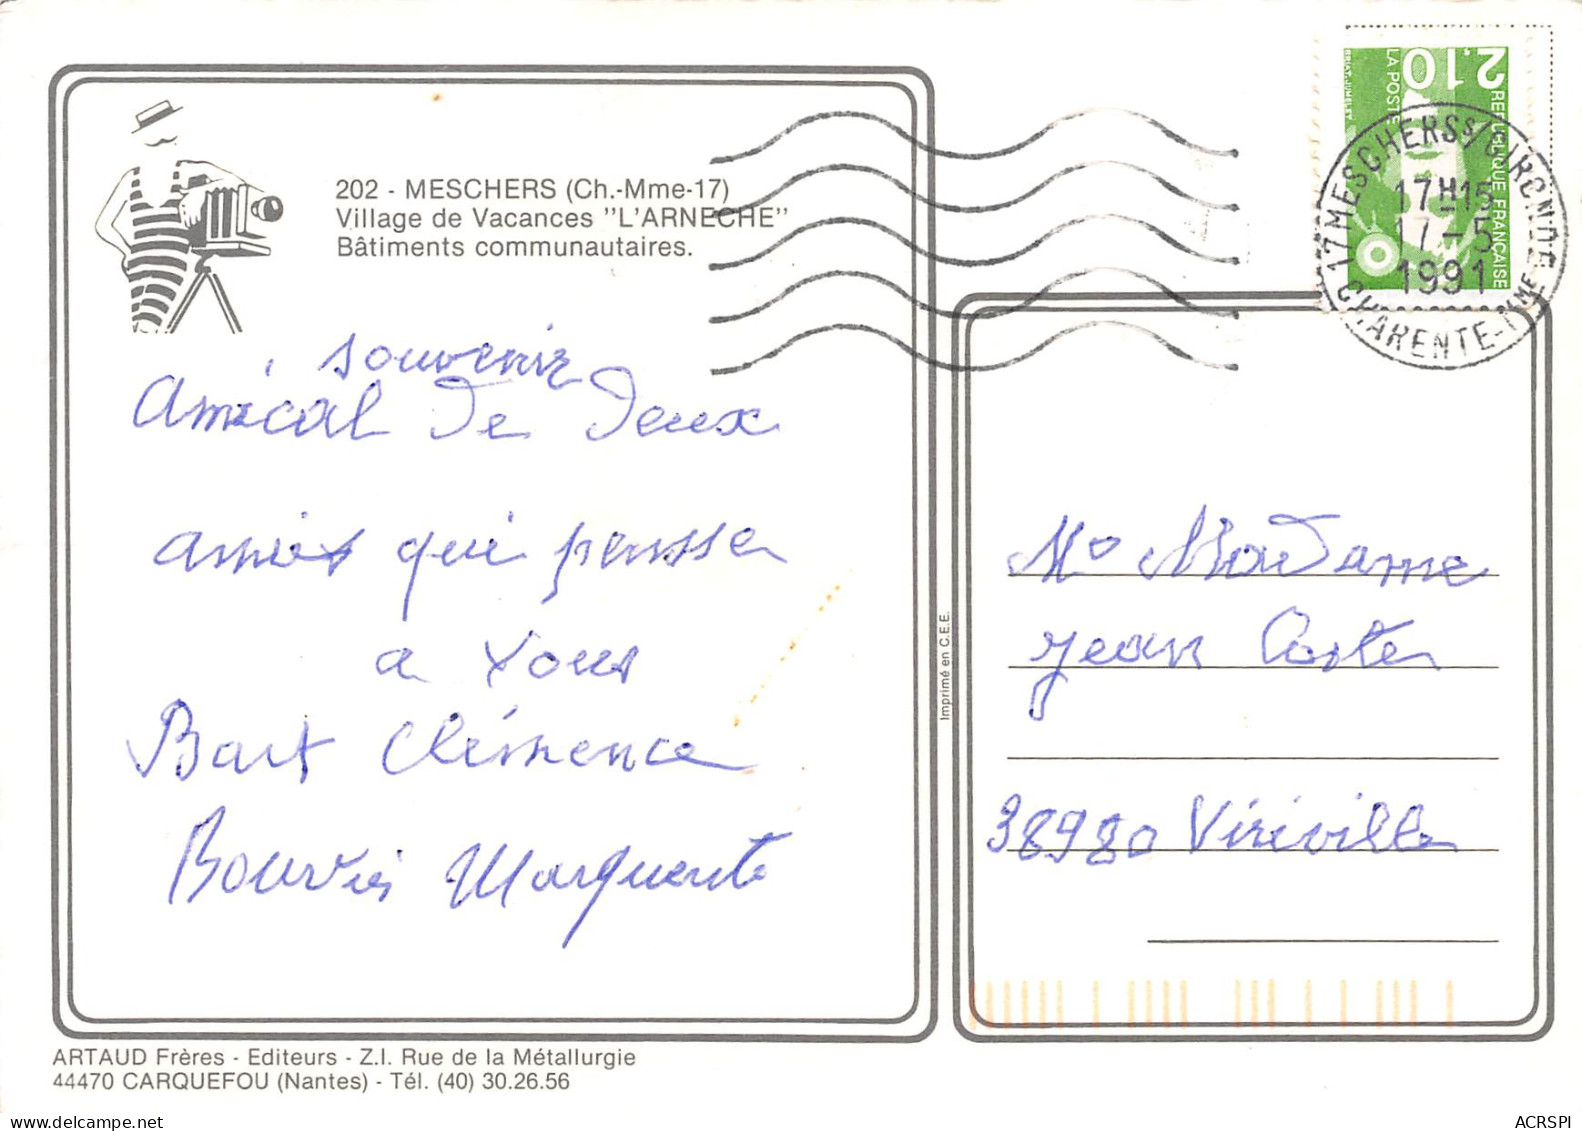 202 - MESCHERS (Ch.-Mme-17)
Village de Vacances "L'ARNECHE"
Bâtiments communautaires.
souvenir
amical de deux
amies qui pensse
a vous
Bart Clémence
Bouvier Marguerite
Imprimé en C.E.E.
2,10
LA POSTE
REPUBLIQUE FRANÇAISE
BRIAT-JUMELET
17 MESCHERS S/GIRONDE
17H15
17-5
1991
CHARENTE-MME
Mr Madame
Jean Coste
38980 Viriville
ARTAUD Frères - Editeurs - Z.I. Rue de la Métallurgie
44470 CARQUEFOU (Nantes) - Tél. (40) 30.26.56
ACRSPI